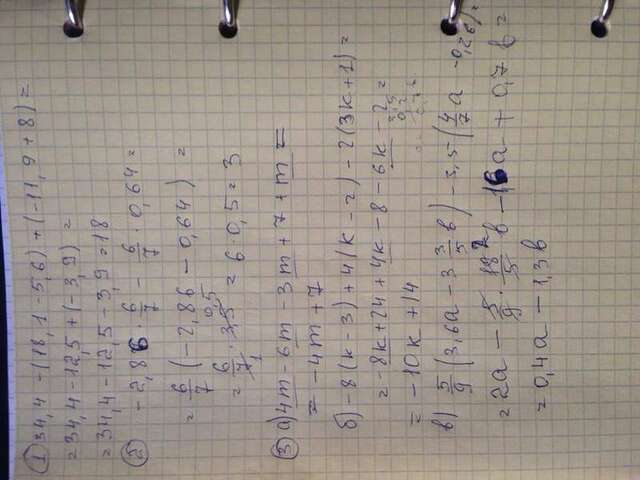 ① 34,4 - (18,1 - 5,6) + (-11,9 + 8) =
= 34,4 - 12,5 + (-3,9) =
= 34,4 - 12,5 - 3,9 = 18
② -2,86 · 6/7 - 6/7 · 0,64 =
= 6/7 (-2,86 - 0,64) =
= 6/7 · 3,5 = 6 · 0,5 = 3
③ а) 4m - 6m - 3m + 7 + m =
= -4m + 7
б) -8(k - 3) + 4(k - 2) - 2(3k + 1) =
= -8k + 24 + 4k - 8 - 6k - 2 =
= -10k + 14
в) 5/9 (3,6a - 3 3/5 b) - 3,5 (4/7 a - 0,2b) =
= 2a - 5/9 · 18/5 b - 1,6a + 0,7b =
= 0,4a - 1,3b